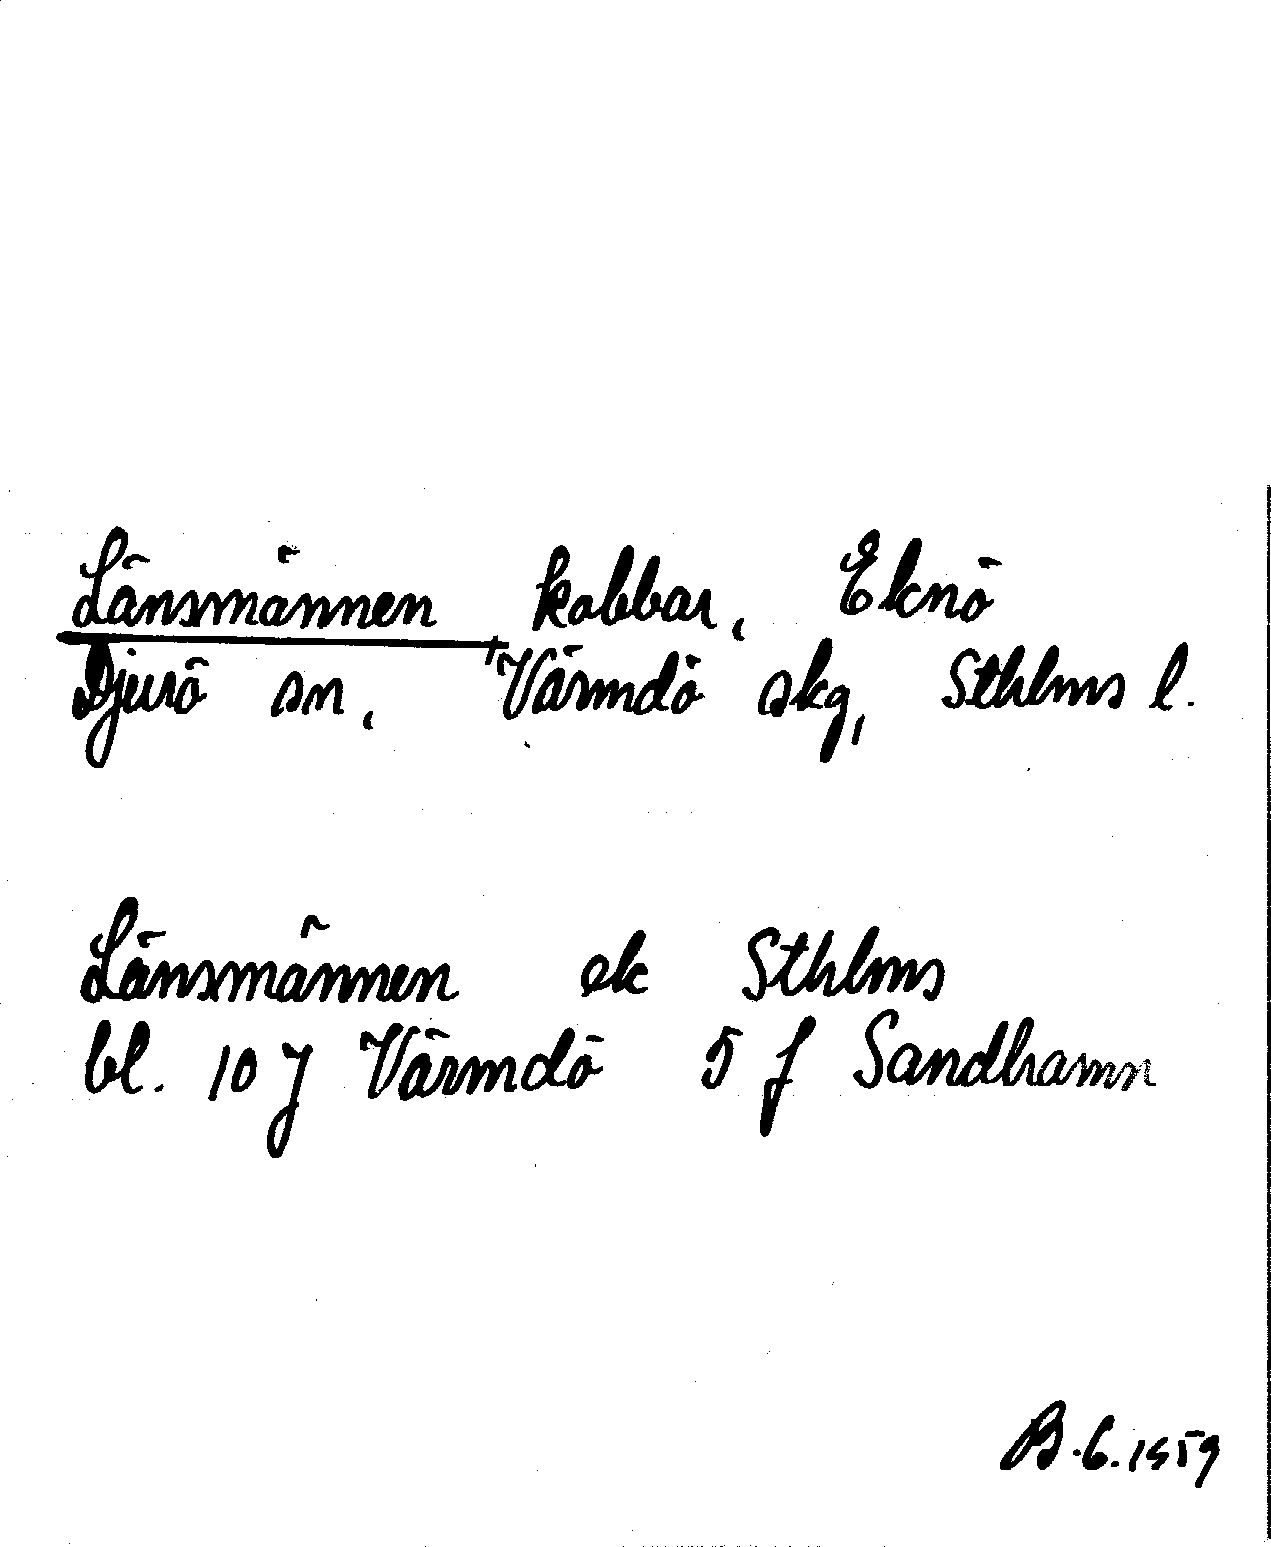 Länsmännen kobbar, Eknö
Djurö sn, Värmdö skg, Sthlms l.
Länsmännen ek Sthlms
bl. 10 J Värmdö 5 f Sandhamn
B.G. 1959